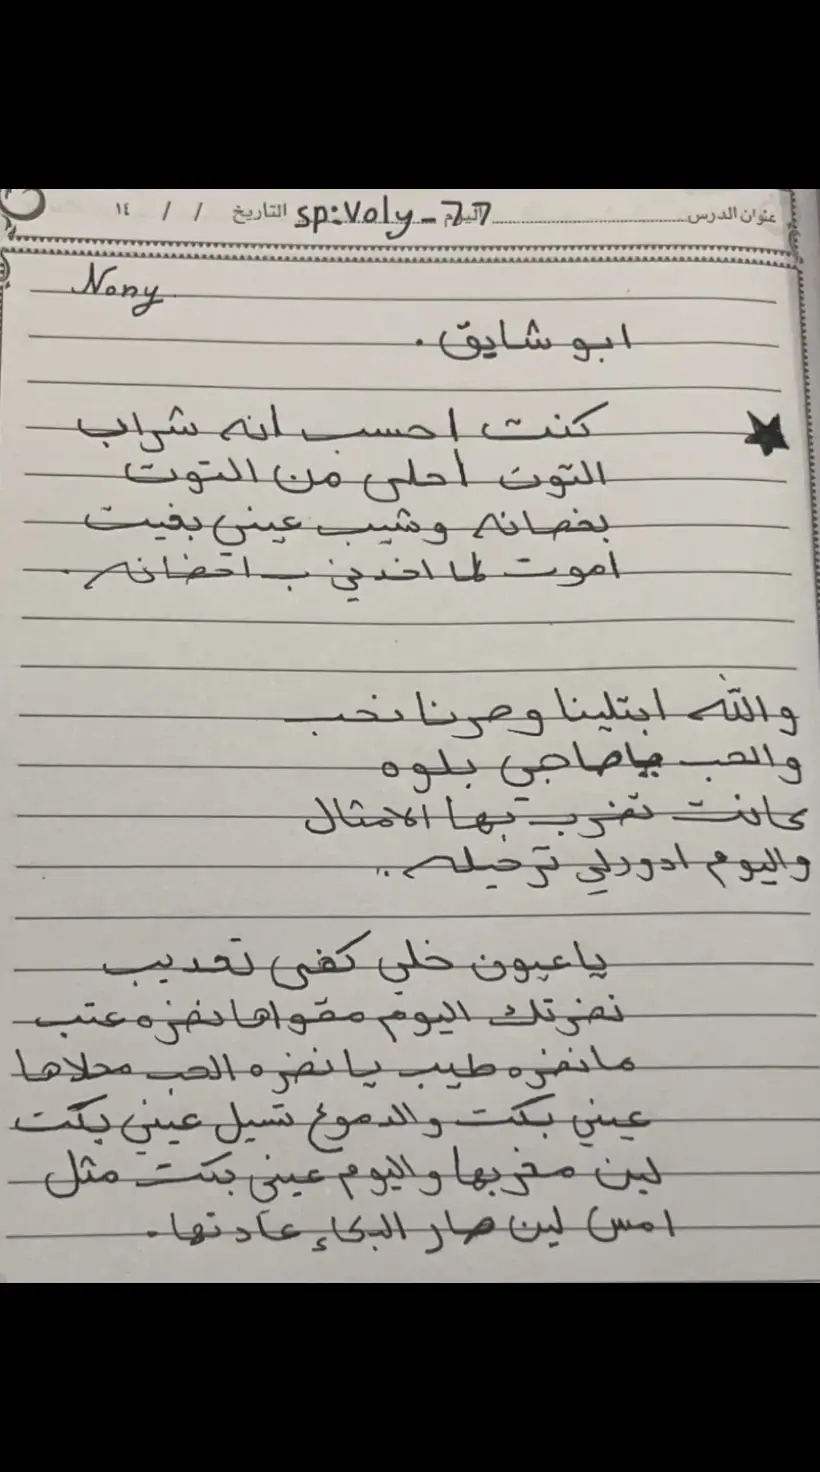 عنوان الدرس اليوم sp:Voly_77 التاريخ / / ١٤
Nony
ابو شايق .
كنت احسب انه شراب
التوت احلى من التوت
بغصانه وشيب عيني بغيت
اموت لما اخدني ب احضانه .
والله ابتلينا وصرنا نحب
والحب ياصاحي بلوه
كانت تضرب بها الامثال
واليوم ادورلي ترحيله ..
ياعيون خلي كفى تعديب
نضرتك اليوم مقواها نضره عتب
مانضره طيب يا نضره الحب محلاها
عيني بكت والدموع تسيل عيني بكت
لين مغربها واليوم عيني بكت مثل
امس لين صار البكاء عادتها .